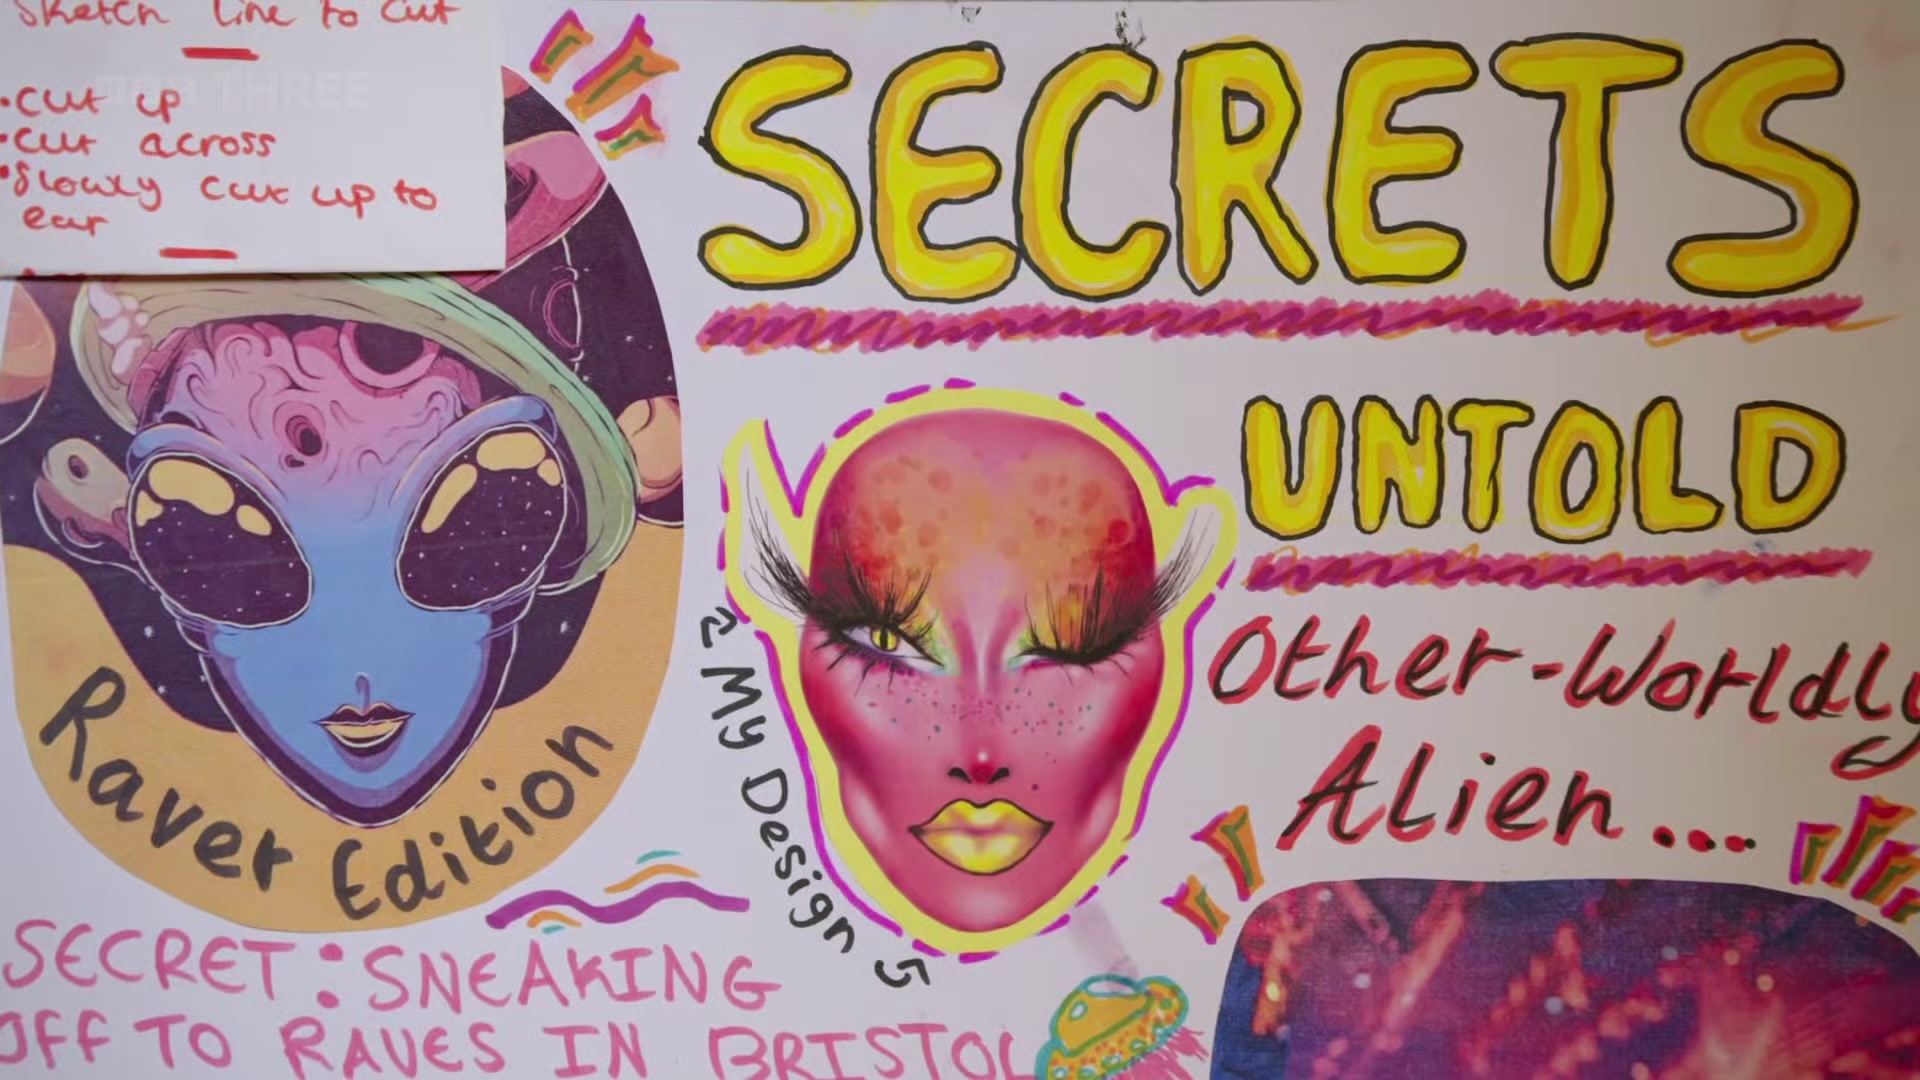 Sketch line to cut
• cut up
• cut across
• Slowly cut up to
ear
SECRETS
UNTOLD
Other-Worldly
Alien...
Raver Edition
My Design
SECRET: SNEAKING
OFF TO RAVES IN BRISTOL
THREE